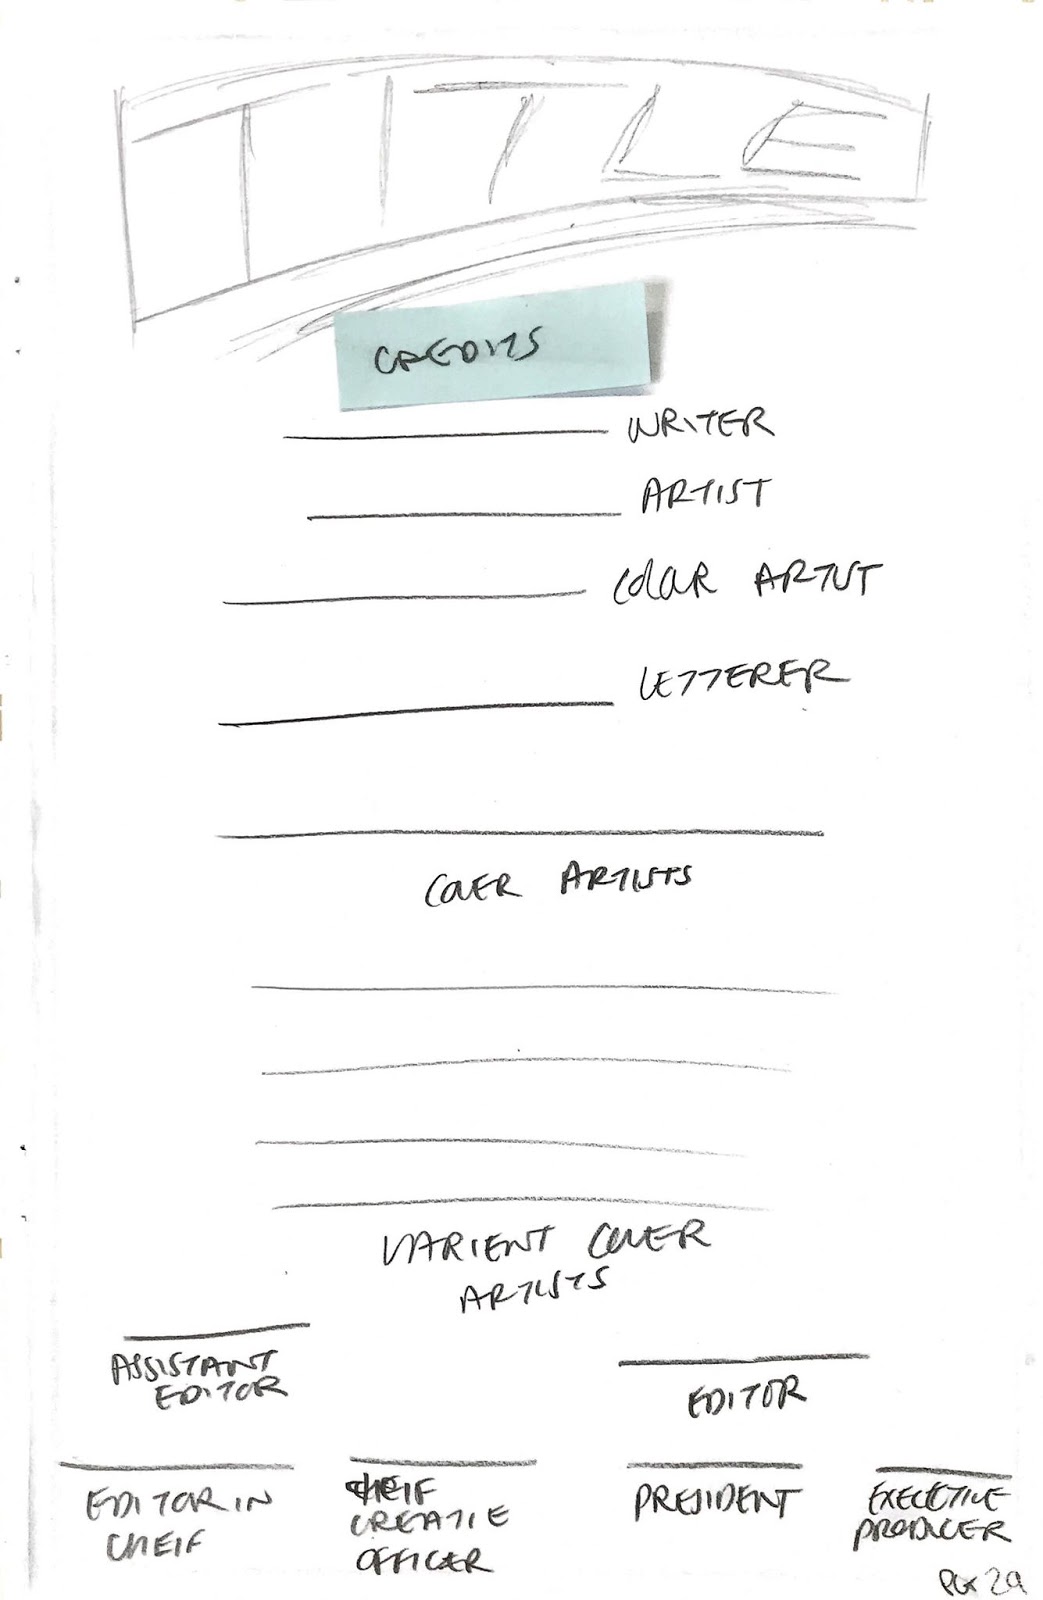 TITLE
CREDITS
WRITER
ARTIST
COLOR ARTIST
LETTERER
COVER ARTISTS
VARIENT COVER
ARTISTS
ASSISTANT
EDITOR
EDITOR
EDITOR IN
CHEIF
CHEIF
CREATIE
OFFICER
PRESIDENT
EXECETIVE
PRODUCER
PG 29